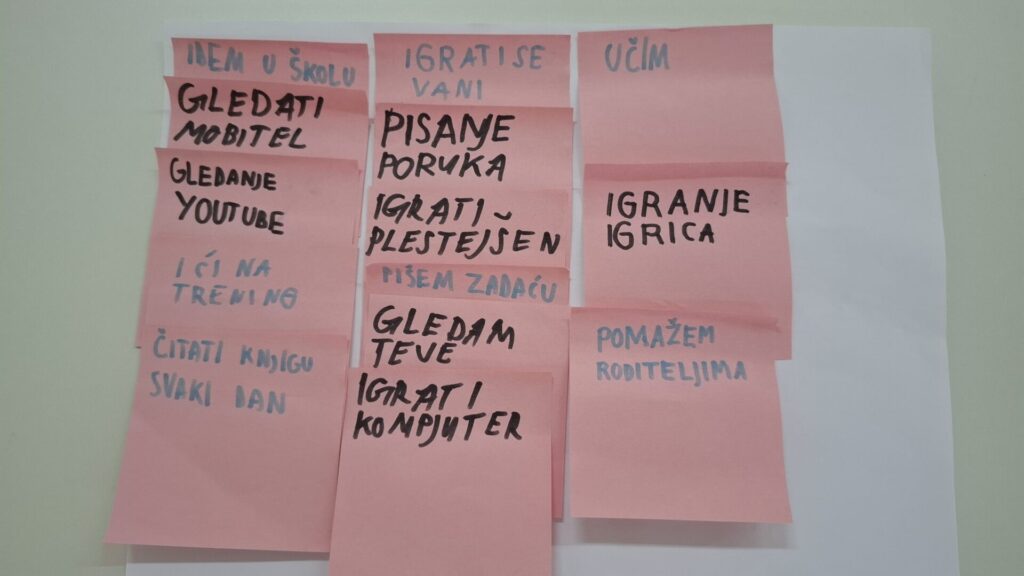 IDEM U ŠKOLU
GLEDATI
MOBITEL
GLEDANJE
YOUTUBE
I ĆI NA
TRENING
ČITATI KNJIGU
SVAKI DAN
IGRATI SE
VANI
PISANJE
PORUKA
IGRATI
PLESTEJŠEN
PIŠEM ZADAĆU
GLEDAM
TEVE
IGRATI
KOMPJUTER
UČIM
IGRANJE
IGRICA
POMAŽEM
RODITELJIMA